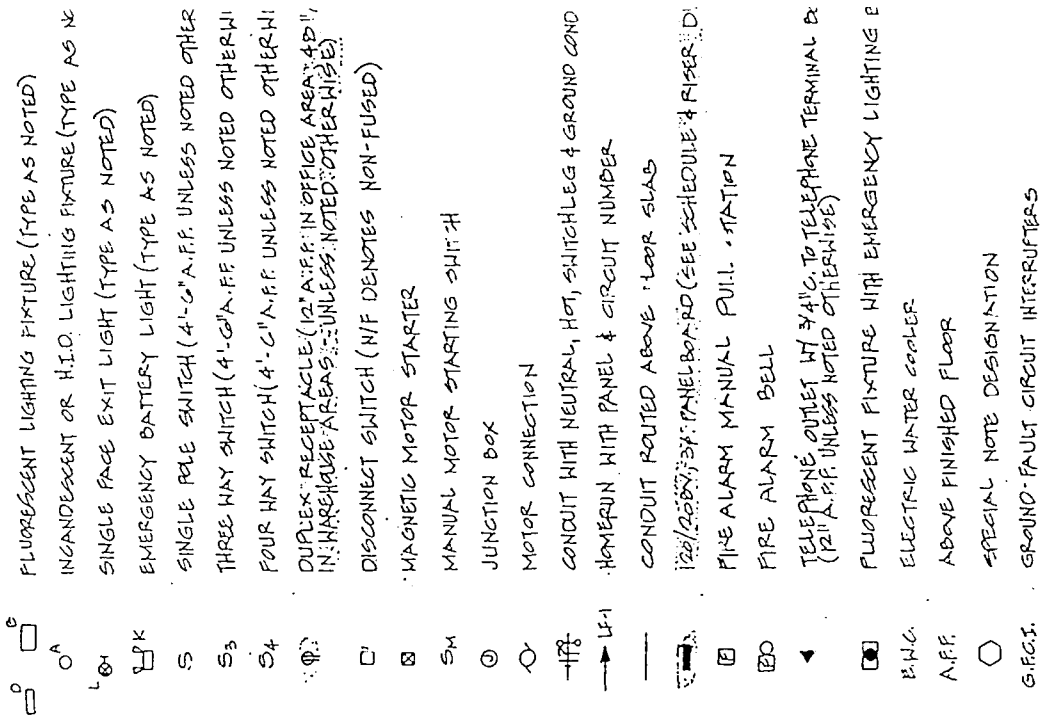 D B FLUORESCENT LIGHTING FIXTURE (TYPE AS NOTED)
A INCANDESCENT OR H.I.D. LIGHTING FIXTURE (TYPE AS
L SINGLE FACE EXIT LIGHT (TYPE AS NOTED)
K EMERGENCY BATTERY LIGHT (TYPE AS NOTED)
S SINGLE POLE SWITCH (4'-6" A.F.F. UNLESS NOTED OTHER
S3 THREE WAY SWITCH (4'-6" A.F.F. UNLESS NOTED OTHERWI
S4 FOUR WAY SWITCH (4'-6" A.F.F. UNLESS NOTED OTHERWI
DUPLEX RECEPTACLE (12" A.F.F. IN OFFICE AREA, 48",
IN WAREHOUSE AREAS - UNLESS NOTED OTHERWISE)
DISCONNECT SWITCH (N/F DENOTES NON-FUSED)
MAGNETIC MOTOR STARTER
SM MANUAL MOTOR STARTING SWITCH
J JUNCTION BOX
MOTOR CONNECTION
CONDUIT WITH NEUTRAL, HOT, SWITCHLEG & GROUND COND
LF-1 HOMERUN WITH PANEL & CIRCUIT NUMBER
CONDUIT ROUTED ABOVE FLOOR SLAB
120/208V, 3Ø PANELBOARD (SEE SCHEDULE & RISER DI
F FIRE ALARM MANUAL PULL STATION
F FIRE ALARM BELL
TELEPHONE OUTLET W/ 3/4" C. TO TELEPHONE TERMINAL
(12" A.F.F. UNLESS NOTED OTHERWISE)
FLUORESCENT FIXTURE WITH EMERGENCY LIGHTING
E.W.C. ELECTRIC WATER COOLER
A.F.F. ABOVE FINISHED FLOOR
SPECIAL NOTE DESIGNATION
G.F.C.I. GROUND-FAULT CIRCUIT INTERRUPTERS